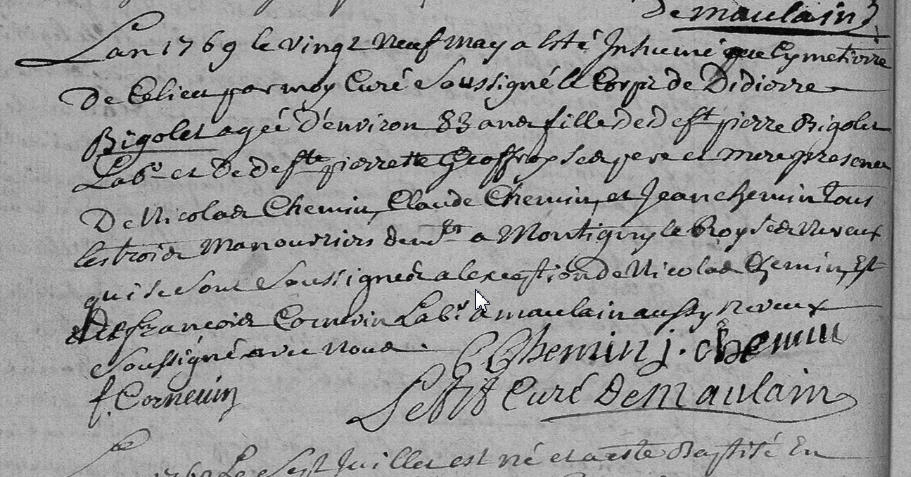 Demaulain
Lan 1769 le vingt Neuf may a Esté Inhumé Cymetierre
De Celieu par moy Curé Soussigné le Corps de Didierre
Bigolet agéé D'environ 83 ans fille de deft pierre Bigolet
Labr et De defte pierrette Geoffroy Ses pere et mere presence
De Nicolas Chemin, Claude Chemin, et Jean chemin tous
les trois Manouvriers demts a Montigny le Roy Ses Neveux
qui se Sont Soussignés a lexception de Nicolas Chemin, Est
De francois Cornevin Labr a maulain aussy Neveux
Soussigné avec Nous.
C Chemin j. chemin
f. Cornevin
Petit Curé Demaulain
Le Sept Juillet est né et a este Baptisé En